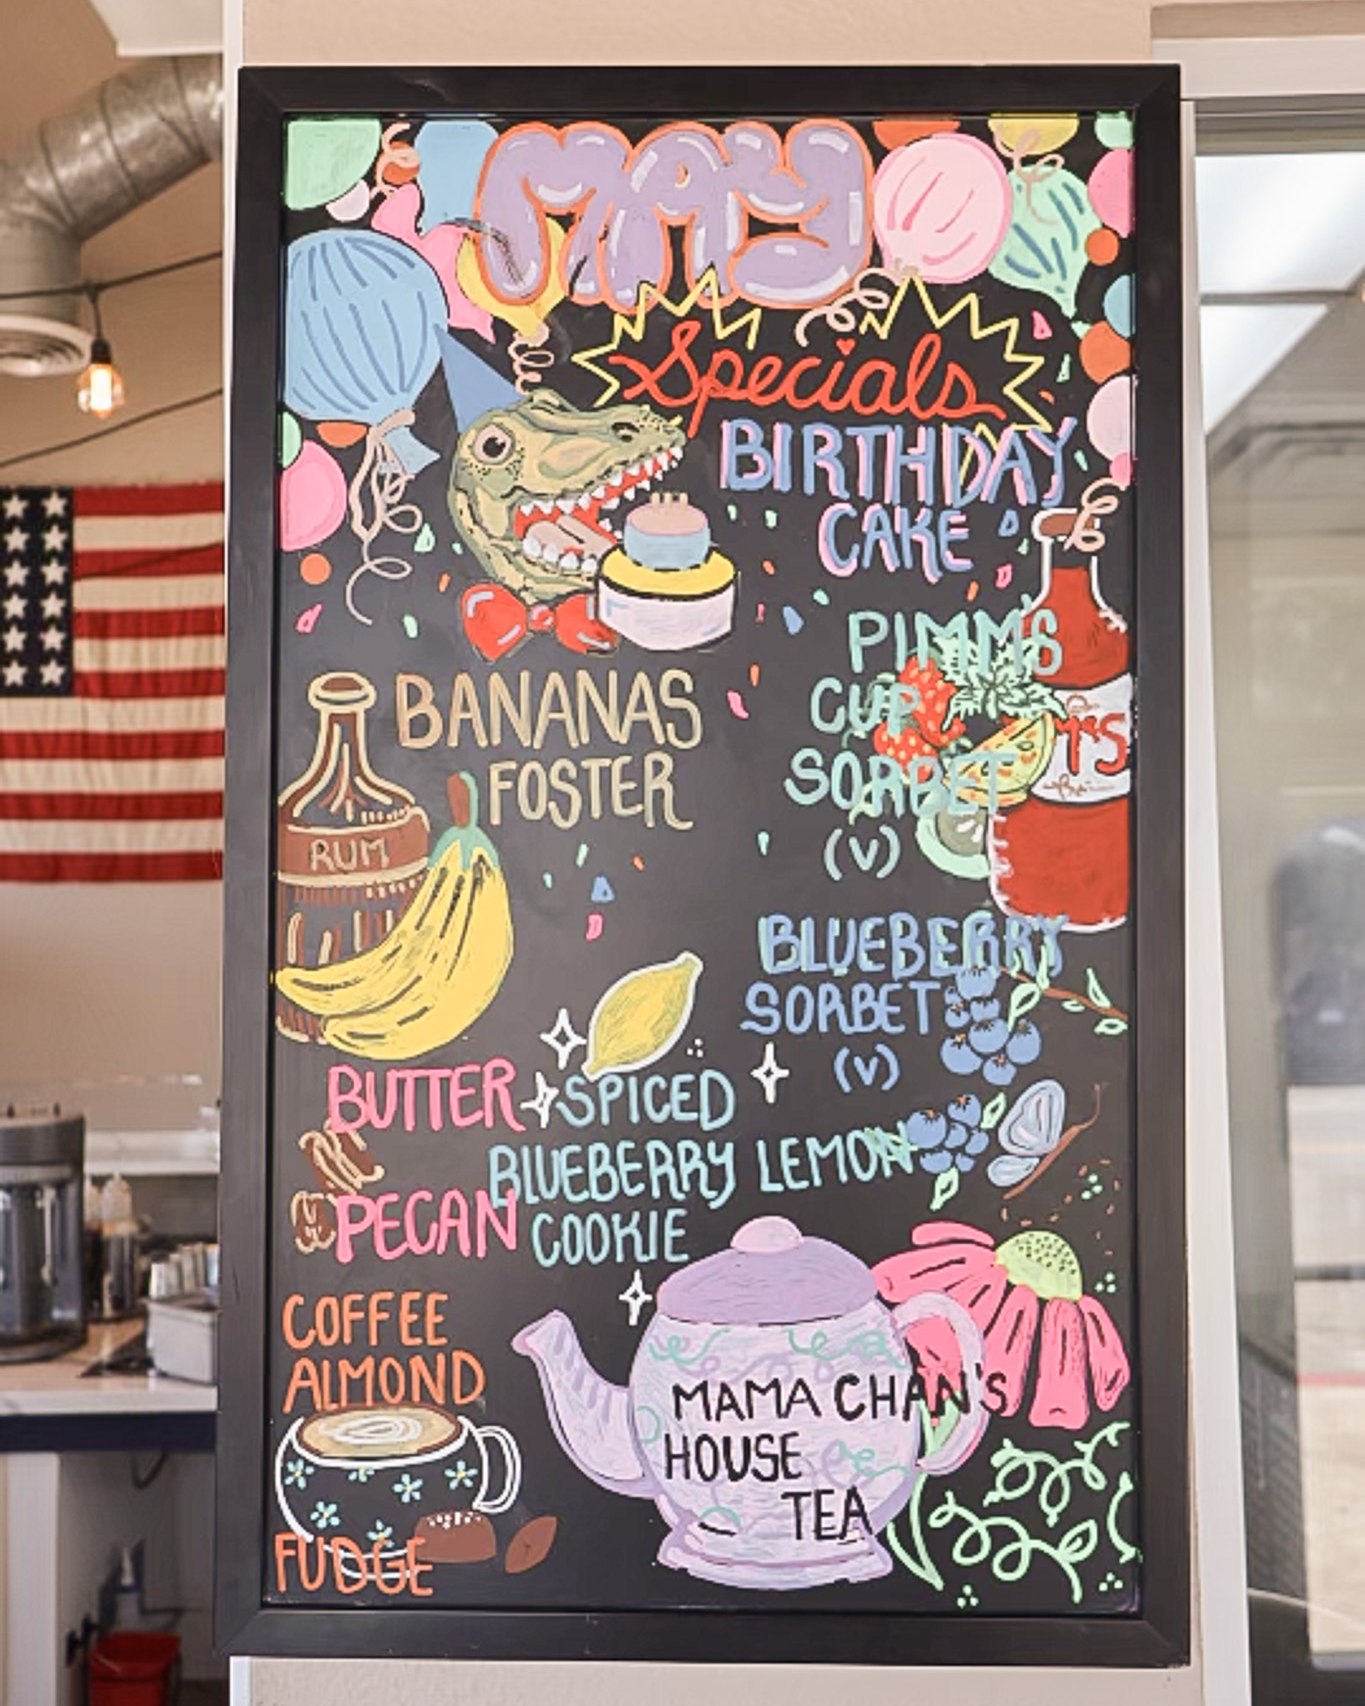 MAY
Specials
BIRTHDAY
CAKE
PIMM'S
CUP
SORBET
(V)
BANANAS
FOSTER
RUM
'S
BLUEBERRY
SORBET
(V)
BUTTER
PECAN
SPICED
BLUEBERRY LEMON
COOKIE
COFFEE
ALMOND
FUDGE
MAMA CHAN'S
HOUSE
TEA